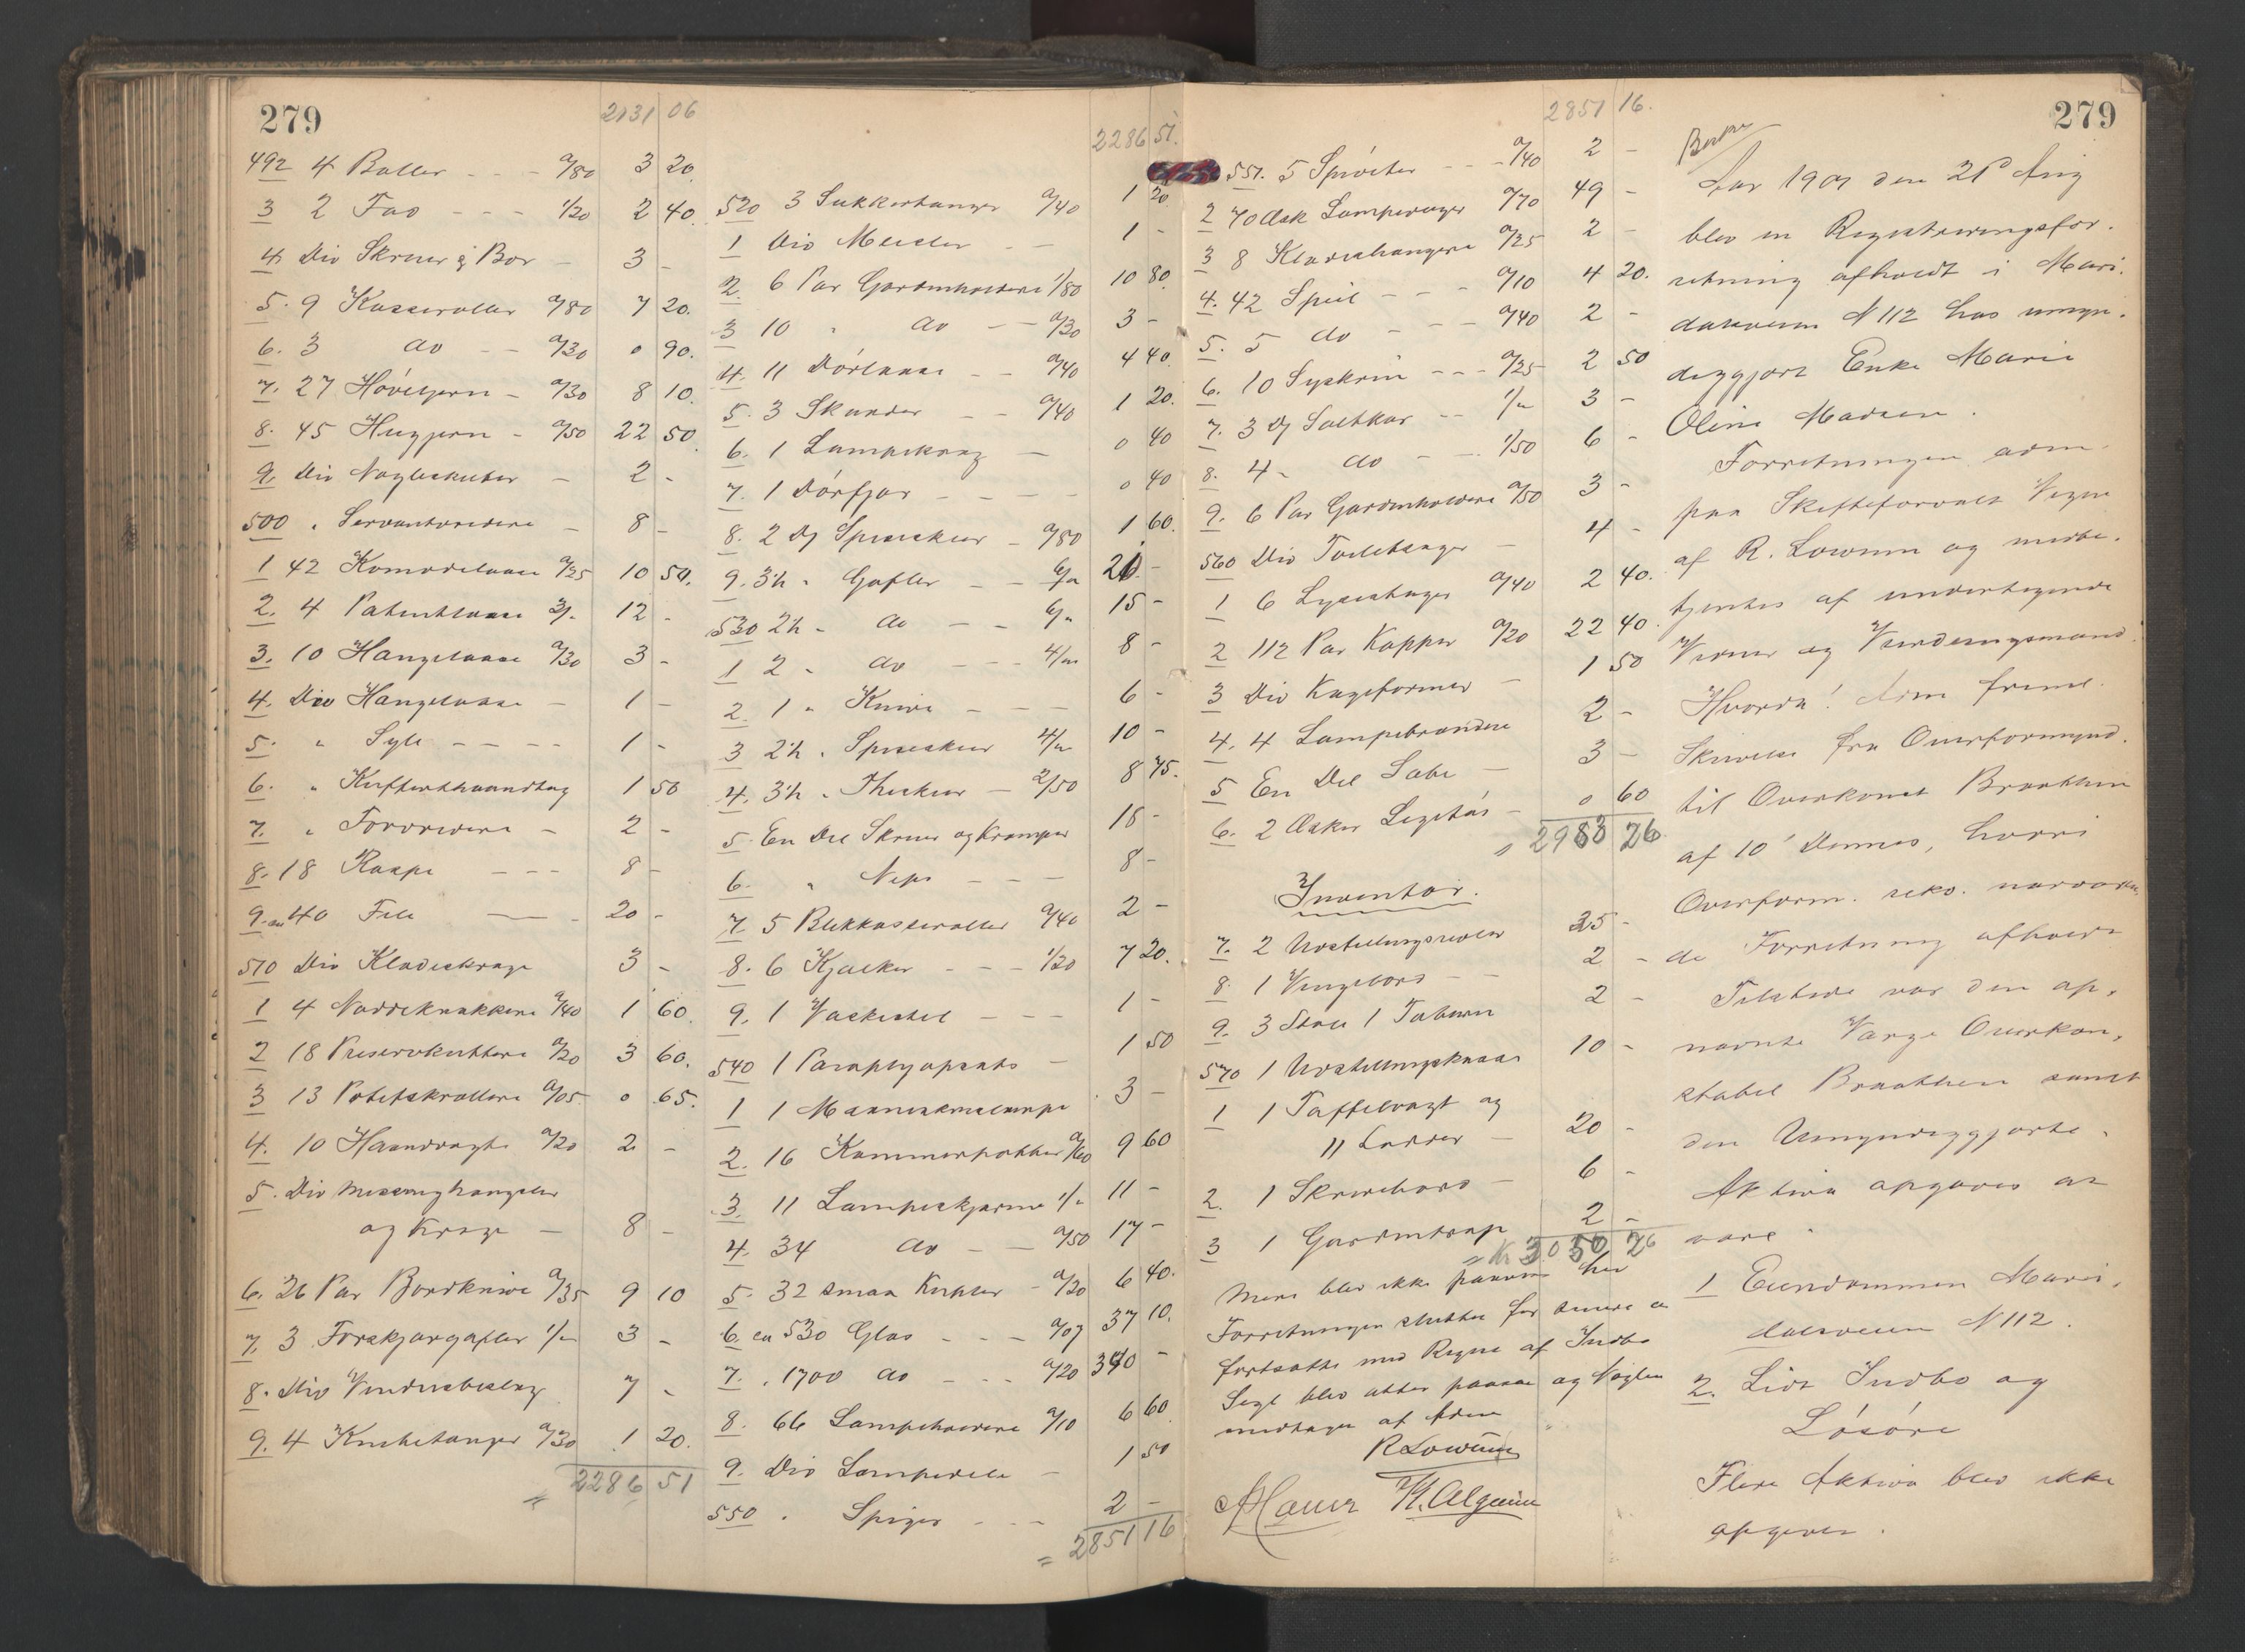 279
2131 06
492 4 Boller - - - a/80 3 20
3 2 Fad - - - 1/20 2 40
4 Div Skruer & Bor - 3 -
5. 9 Kasseroller a/80 7 20.
6. 3 do - - a/30 0 90.
7. 27 Hövljern - a/30 8 10.
8. 45 Hugjern - a/50 22 50
9. Div Nøgleskilter - 2 -
500 " Servantvridere - 8 -
1 42 Komodelaase a/25 10 50.
2. 4 Patentlaase 3/- 12 -
3. 10 Hangelaase a/30 3 -
4. Div Hangelaase - 1 -
5. " Syle - - - - 1 -
6. " Kufferthaandtag 1 50
7. " Forvridere - 2 -
8. 18 Raspe - - - 8 -
9. ca 40 File - - 20 -
510 Div Kladeskrage 3 -
1 4 Nøddeknakkere a/40 1 60.
2 18 Preserveknivere a/20 3 60.
3 13 Potetskrællere a/05 0 65.
4. 10 Haandvagte a/20 2 -
5. Div Messinghangsler
og Krage - 8 -
6. 26 Par Bordknive a/35 9 10
7. 3 Forskjærgafler 1/- 3 -
8. Div Vindusbeslag 7 -
9. 4 Knibetanger a/30 1 20.
= 2286 51
2286 51.
520 3 Sukkertanger a/40 1 20
1 Div Meisler - - 1 -
2. 6 Par Gardinholdere 1/80 10 80
3 10 " do - - a/30 3 -
4. 11 Dörlaase - - a/40 4 40.
5. 3 Skander - - a/40 1 20.
6. 1 Lampekrag - 0 40
7. 1 Dörfjær - - - - 0 40
8. 2 Dz Spiseskeer - a/80 1 60.
9. 3½ " Gafler - - 6/- 21 -
530 2½ " do - - 6/- 15 -
1 2 " do - - - 4/- 8 -
2. 1 " Knive - - - 6 -
3 2½ " Spiseskeer 4/- 10 -
4. 3½ " Theskeer - 2/50 8 75.
5. En Del Skruer og Kramper 18 -
6. " Neps - - - 8 -
7. 5 Blikkasseroller a/40 2 -
8. 6 Kjælker - - - 1/20 7 20.
9. 1 Vaskestel - - - 1 -
540 1 Paraplyopsats - 1 50
1 1 Maaneskinslampe 3 -
2. 16 Kammerpotter a/60 9 60
3. 11 Lampeskjærme 1/- 11 -
4. 34 do - - a/50 17 -
5. 32 smaa Kupler - a/20 6 40.
6. ca 530 Glas - - - a/07 37 10.
7. " 1700 do - - - a/20 340 -
8. 66 Lampeholdere a/10 6 60
9. Div Lampedele - 1 50
550 " Spiger - - - 2 -
= 2851 16
279
2851 16.
551. 5 Spröiter - - - a/40 2 -
2 70 Æsk Lampevæger a/70 49 -
3 8 Kladeshangere a/25 2 -
4. 42 Speil - - - a/10 4 20.
5. 5 do - - - a/40 2 -
6. 10 Syskrin - - - a/25 2 50
7. 3 Dz Saltkar - - 1/- 3 -
8. 4 " do - - - 1/50 6 -
9. 6 Par Gardinholdere a/50 3 -
560 Div Toiletsager - 4 -
1 6 Lysestager a/40 2 40.
2 112 Par Kopper a/20 22 40.
3 Div Kageformer - 1 50
4. 4 Lampebrændere 2 -
5 En Del Sæbe - 3 -
6. 2 Æsker Legetøi - 0 60
= 2983 26
Inventar.
7. 2 Udstillingsreoler 35 -
8. 1 Vingebord - - 2 -
9. 3 Stole 1 Taburet 2 -
570 1 Udstillingskasse 10 -
1 1 Taffelvægt og
11 Lodder - 20 -
2. 1 Skrivebord - 6 -
3 1 Gardintrap 2 -
= Kr 3050 26
Mere blev ikke paavist her
Forretningen sluttes for senere at
fortsætte med Registr af Indbo
Segl blev atter paasat og Nøglen
medtagen af Adm
R Lowum
Berpn
Aar 1901 den 21de Aug
blev en Registreringsfor-
retning afholdt i Mari-
dalsveien N 112 hos umyn-
diggjort Enke Marie
Oline Madsen.
Forretningen adm.
paa Skifteforvalt Vegne
af R. Lowum og medbe-
tjentes af undertegnede
Vidner og Vurderingsmænd.
Hvorda! Adm freml.
Skrivelse fra Overformynd.
til Overkonst Braathen
af 10 Dennes, hvori
Overform. rekv. nærværen-
de Forretning afholdt
Tilstede var den op-
nævnte Værge Overkon-
stabel Braathen samt
den Umyndiggjorte.
Aktiva opgaves at
være.
1 Eiendommen Mari-
dalsveien N 112.
2. Lidt Indbo og
Løsøre
Flere Aktiva blev ikke
opgiven.